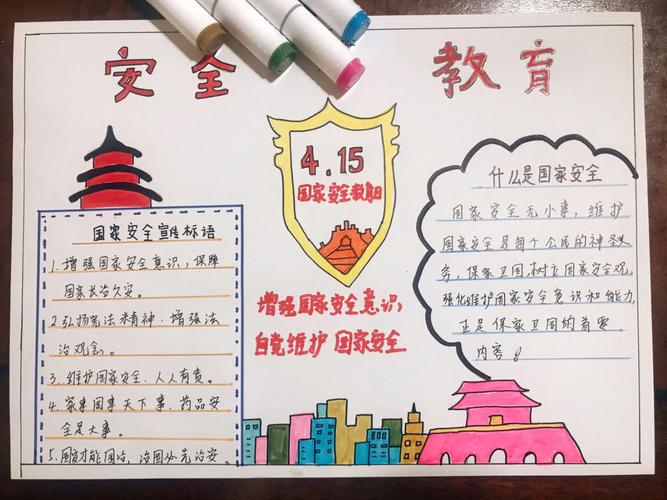 安全 教育
4.15
国家安全教育日
增强国家安全意识,
自觉维护 国家安全
国家安全宣传标语
1.增强国家安全意识,保障
国家长治久安。
2.弘扬宪法精神,增强法
治观念。
3.维护国家安全、人人有责。
4.家事国事天下事,药品安
全是大事。
5.国安才能国治,治国必先治安。
什么是国家安全
国家安全无小事,维护
国家安全是每个公民的神圣义
务,保家卫国,树立国家安全观。
强化维护国家安全意识和能力,
正是保家卫国的首要
内容。